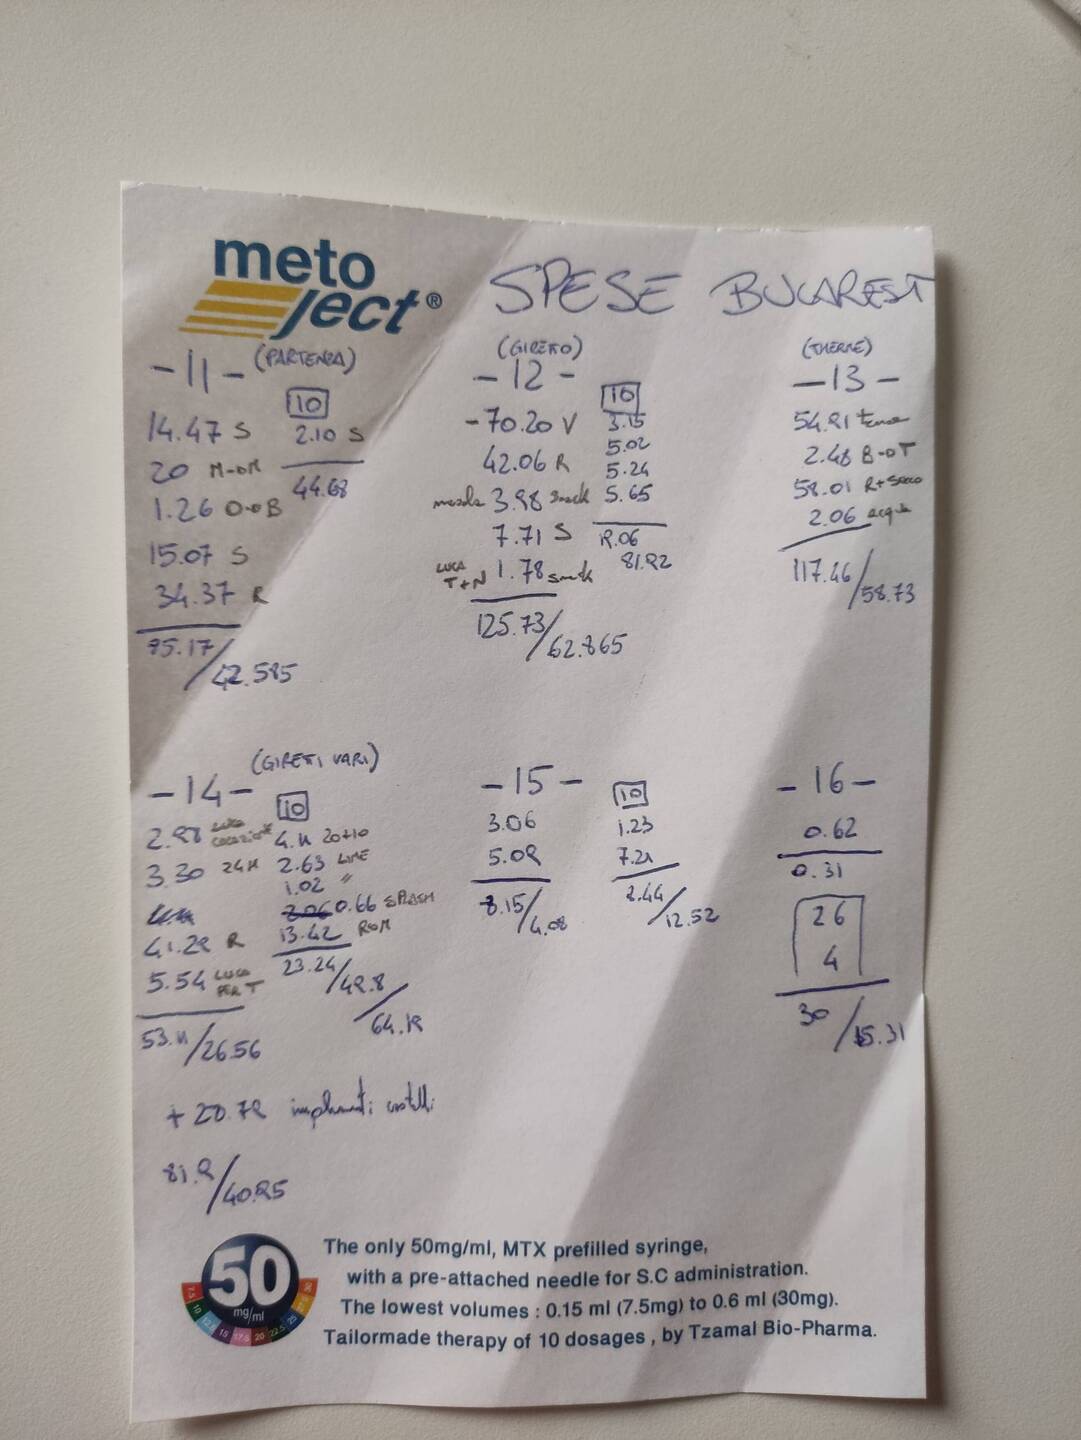 meto
ject®
SPESE BUCAREST
-11- (PARTENZA)
14.47 S
20 M-OM
1.26 O-OB
15.07 S
34.37 R
85.17/42.585
10
2.10 S
44.68
(GIRETTO)
-12-
-70.20 V
42.06 R
3.98 snack
7.71 S
LUCA T+N 1.78 snack
125.73/62.865
10
3.15
5.02
5.24
5.65
19.06
81.92
(THERME)
-13-
54.91 terme
2.48 B-OT
58.01 R+SPACO
2.06 acqua
117.46/58.73
-14- (GIRETTI VARI)
2.98 LUCA
3.30 24H
41.29 R
5.54 LUCA PER T
53.11/26.56
10
4.11 20+10
2.63 LIME
1.02 "
0.66 SPLASH
13.42 ROOM
23.24/49.8
64.19
+ 28.79
81.9/40.95
-15-
3.06
5.09
8.15/4.08
10
1.23
7.21
8.44/12.52
-16-
0.62
0.31
26
4
30/15.31
50
mg/ml
7.5 10 12.5 15 17.5 20 22.5 25 27.5 30
The only 50mg/ml, MTX prefilled syringe,
with a pre-attached needle for S.C administration.
The lowest volumes : 0.15 ml (7.5mg) to 0.6 ml (30mg).
Tailormade therapy of 10 dosages , by Tzamal Bio-Pharma.